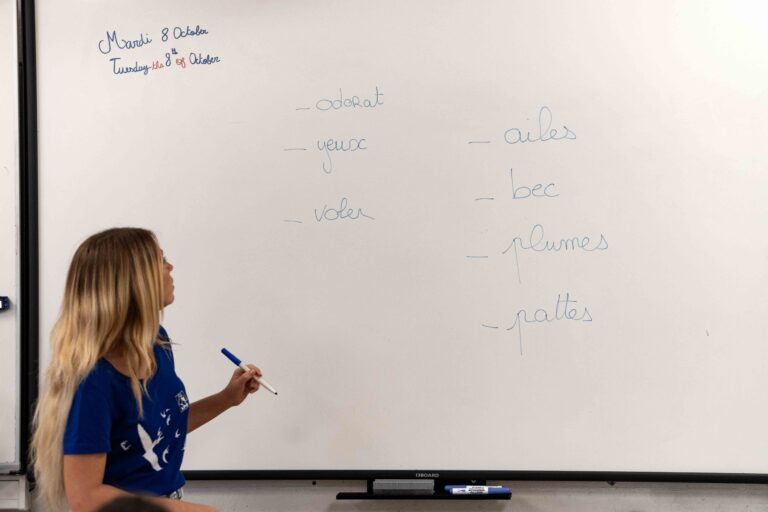 Mardi 8 October
Tuesday the 8th of October
- odorat
- yeux
- voler
- ailes
- bec
- plumes
- pattes
i3BOARD